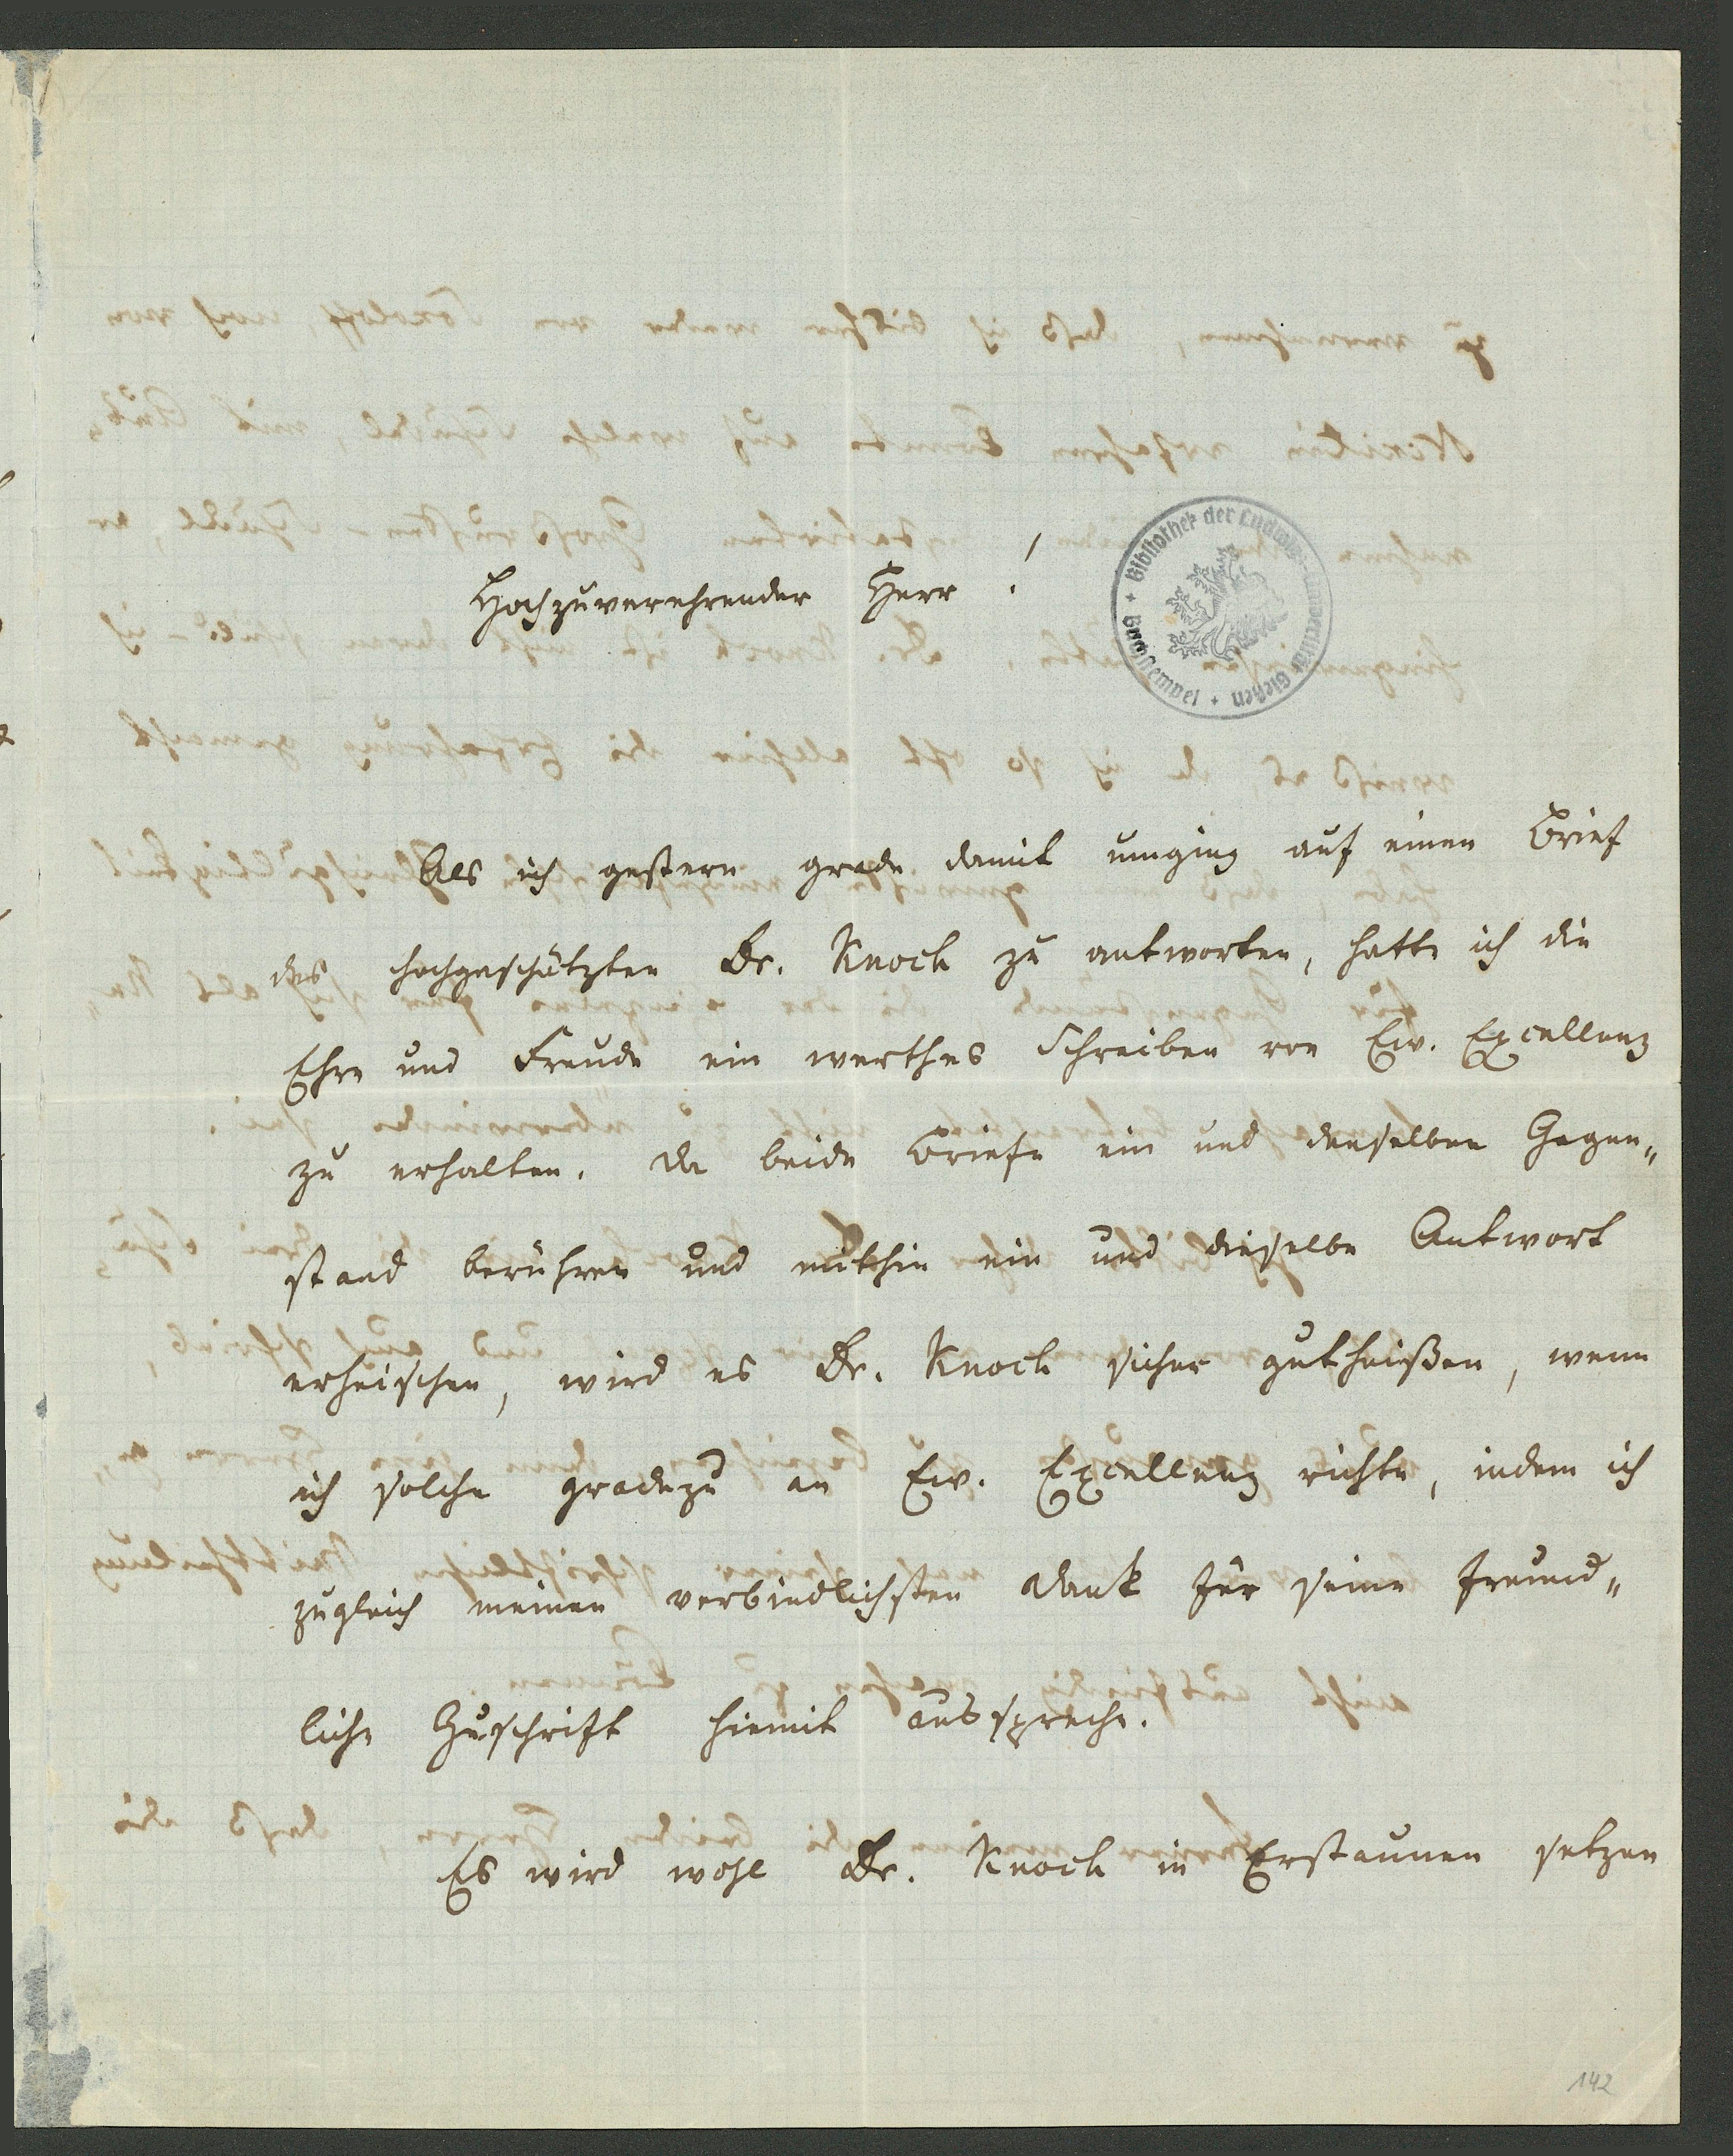 Hochzuverehrender Herr!
Bibliothek der Ludwigs-Universität Gießen + Buchstempel +
Als ich gestern grade damit umging auf einen Brief
des hochgeschätzten Dr. Knoch zu antworten, hatte ich die
Ehre und Freude ein werthes Schreiben von Ew. Excellenz
zu erhalten. Da beide Briefe ein und denselben Gegen„
stand berühren und mithin ein und dieselbe Antwort
erheischen, wird es Dr. Knoch sicher gutheißen, wenn
ich solche gradezu an Ew. Excellenz richte, indem ich
zugleich meinen verbindlichsten Dank für seine freund„
liche Zuschrift hiemit ausspreche.
Es wird wohl Dr. Knoch in Erstaunen setzen
142